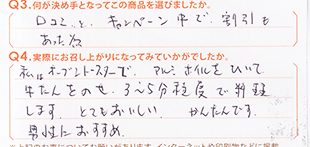 Q3.何が決め手となってこの商品を選びましたか。
口コミと、キャンペーン中で、割引も
あった為
Q4.実際にお召し上がりになってみていかがでしたか。
私はオーブントースターで、アルミホイルをひいて
牛たんをのせ、3〜5分程度で料理
します。とてもおいしい。かんたんです。
男性におすすめ。